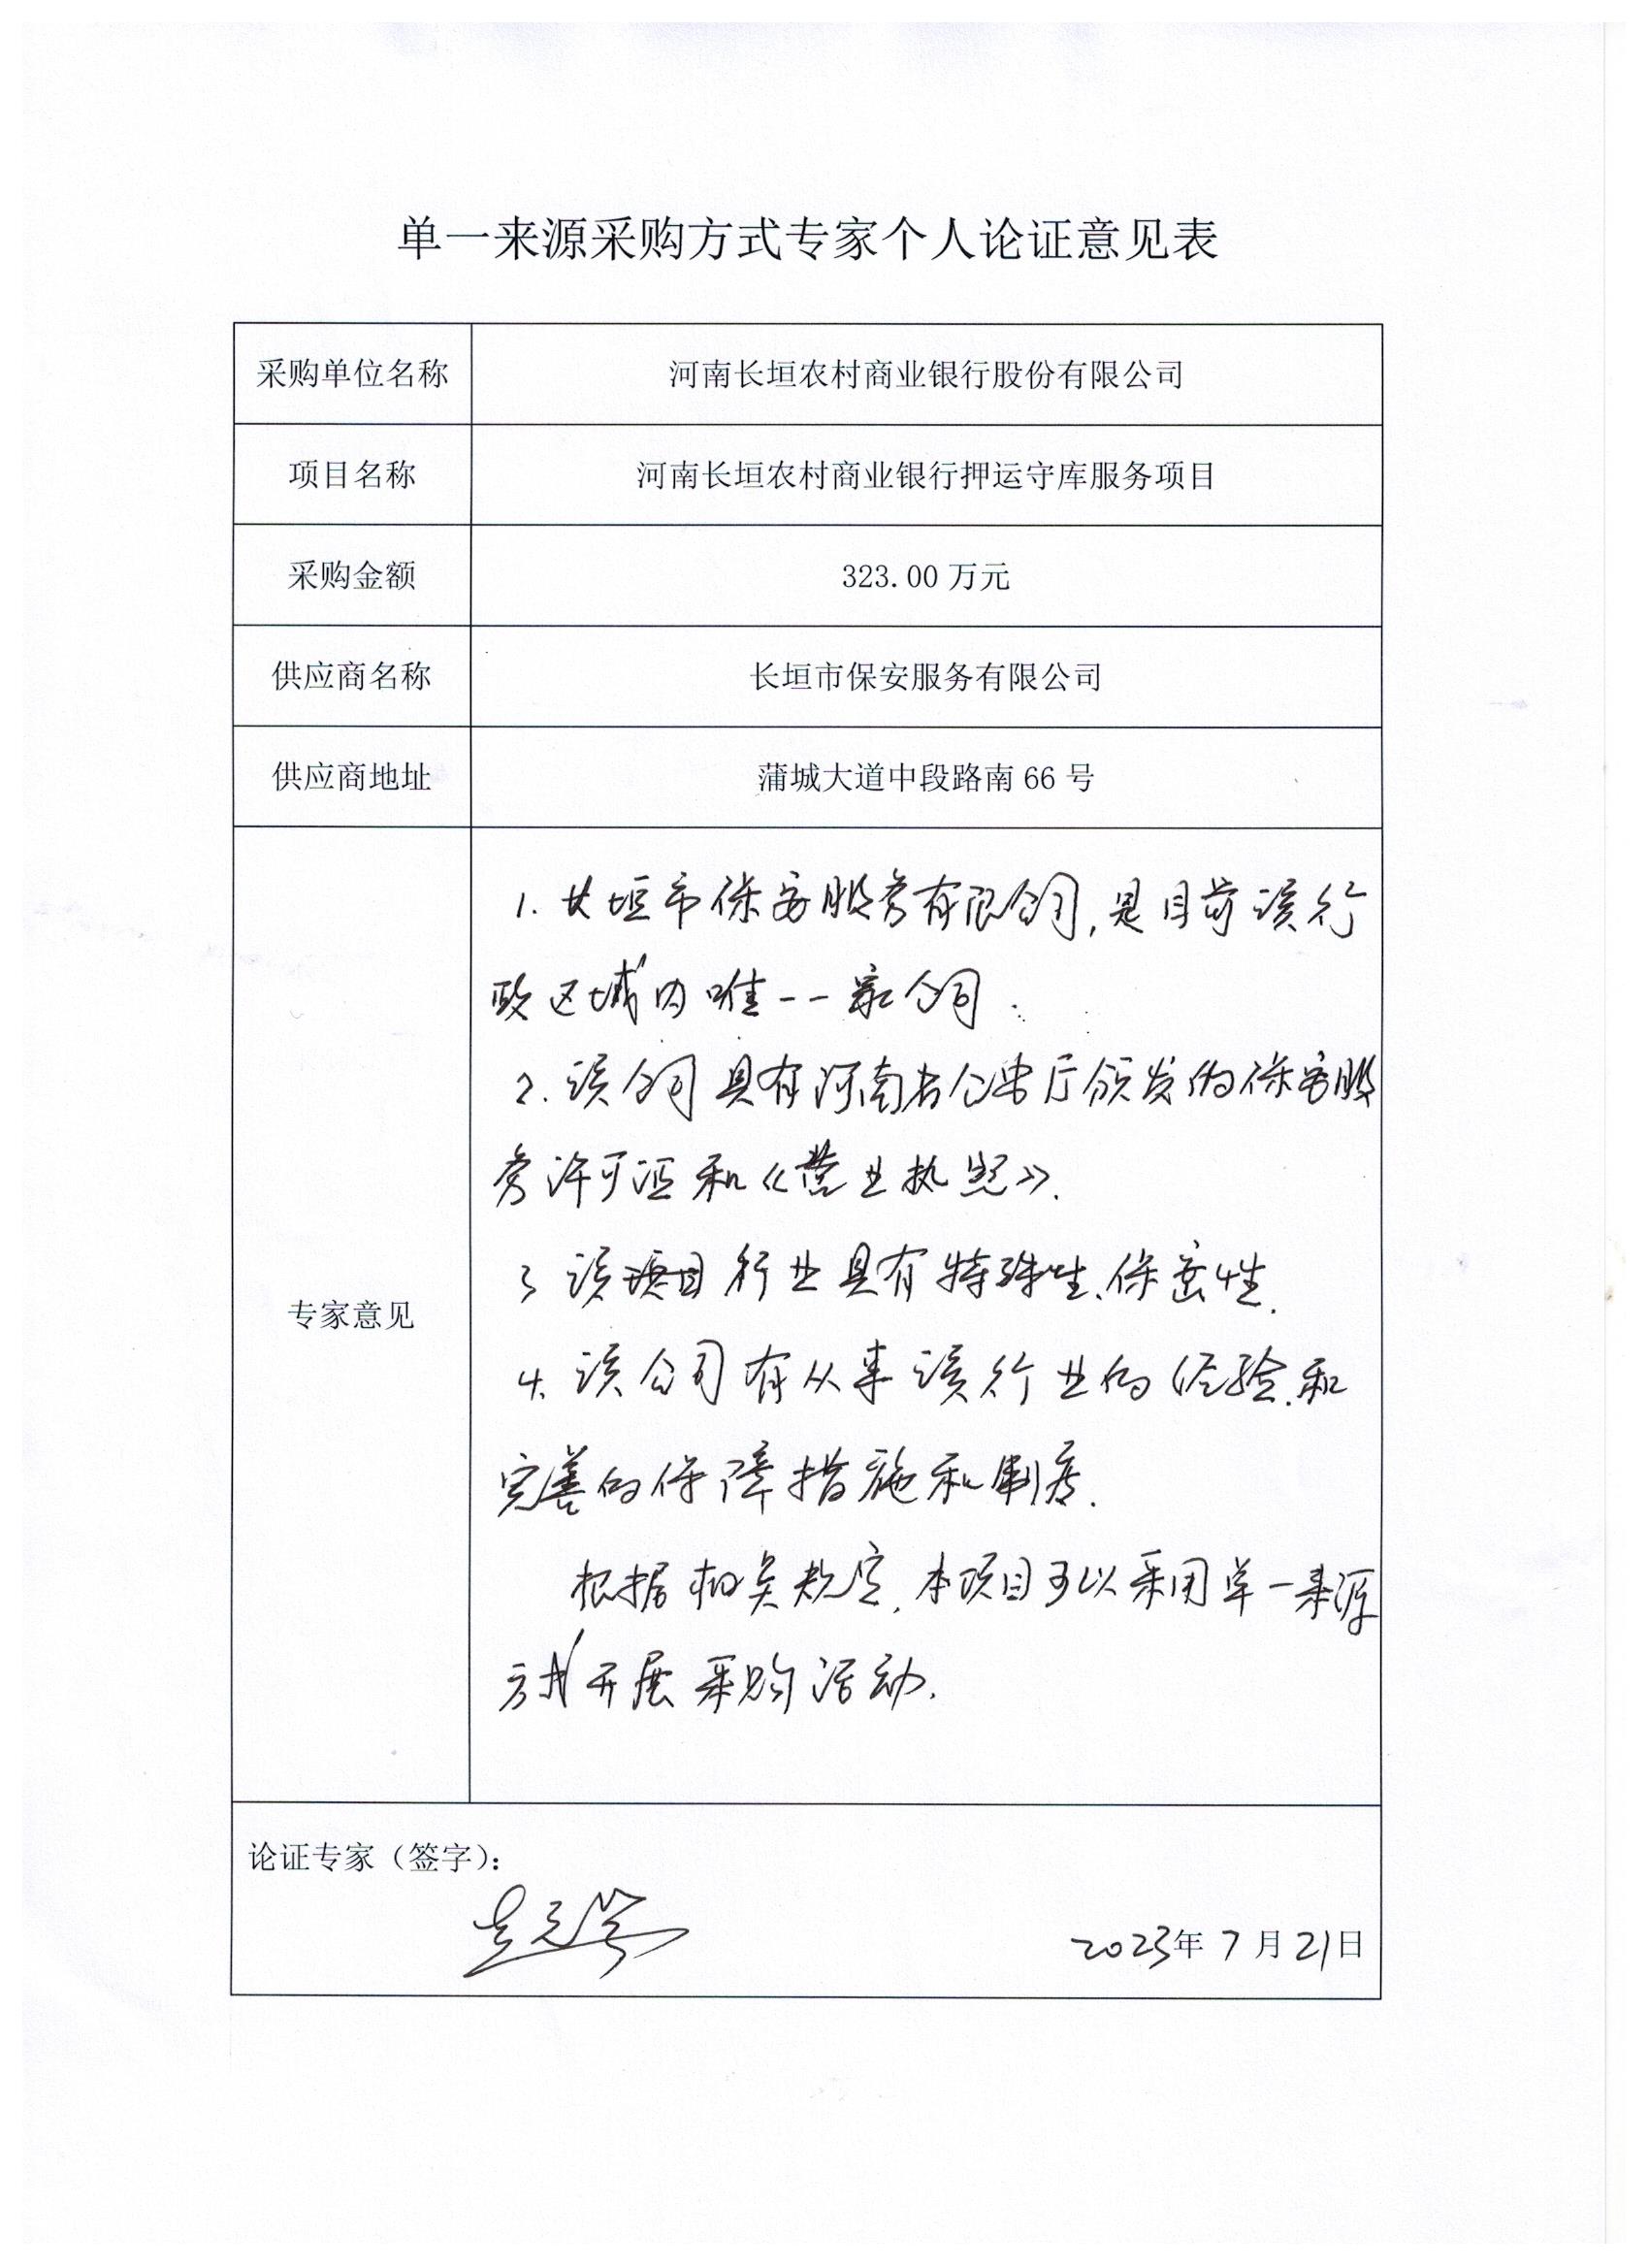 单一来源采购方式专家个人论证意见表
采购单位名称 河南长垣农村商业银行股份有限公司
项目名称 河南长垣农村商业银行押运守库服务项目
采购金额 323.00 万元
供应商名称 长垣市保安服务有限公司
供应商地址 蒲城大道中段路南 66 号
专家意见
1. 长垣市保安服务有限公司,是目前该行
政区域内唯一一家公司.
2. 该公司具有河南省公安厅颁发的保安服
务许可证和《营业执照》.
3 该项目行业具有特殊性、保密性.
4. 该公司有从事该行业的经验.和
完善的保障措施和制度.
根据相关规定,本项目可以采用单一来源
方式开展采购活动.
论证专家（签字）：
2023年 7 月 21日